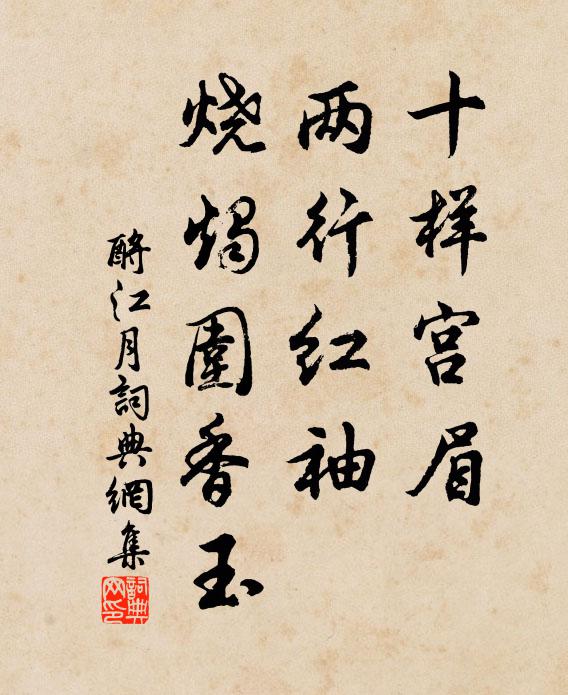 十样宫眉
两行红袖
烧烛围香玉
酹江月詞典網集
詞典網印